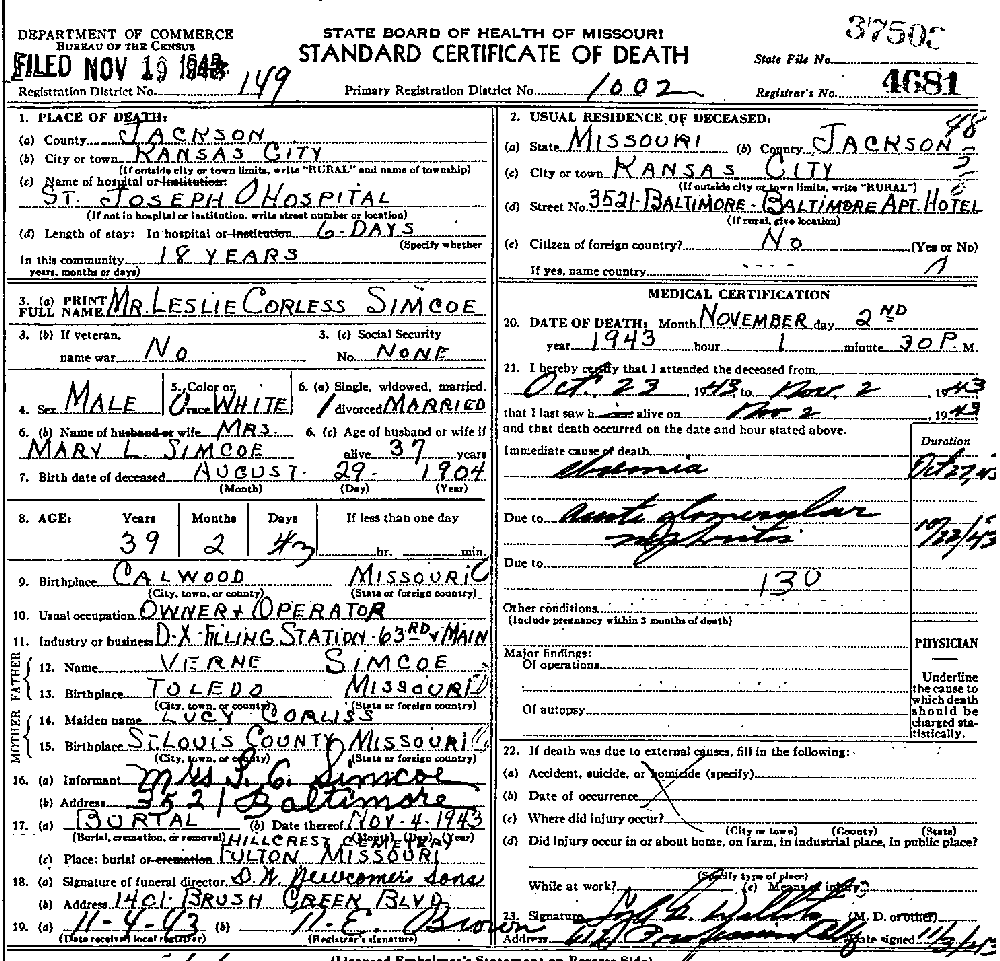 DEPARTMENT OF COMMERCE
BUREAU OF THE CENSUS
STATE BOARD OF HEALTH OF MISSOURI
STANDARD CERTIFICATE OF DEATH
State File No.
FILED NOV 19 1943
4681
Registration District No. 149
Primary Registration District No. 1002
Registrar's No.
1. PLACE OF DEATH:
(a) County JACKSON
(b) City or town KANSAS CITY
(If outside city or town limits, write "RURAL" and name of township)
(c) Name of hospital or institution:
ST. JOSEPH HOSPITAL
(If not in hospital or institution, write street number or location)
(d) Length of stay: In hospital or institution 6-DAYS
(Specify whether
In this community 18 YEARS
years, months or days)
3. (a) PRINT FULL NAME MR. LESLIE CORLESS SIMCOE
3. (b) If veteran, name war No
3. (c) Social Security No. NONE
4. Sex MALE
5. Color or race WHITE
6. (a) Single, widowed, married, divorced MARRIED
6. (b) Name of husband or wife MRS. MARY L. SIMCOE
6. (c) Age of husband or wife if alive 37 years
7. Birth date of deceased AUGUST- 29- 1904
(Month) (Day) (Year)
8. AGE: Years Months Days If less than one day
39 2 hr. min.
9. Birthplace CALWOOD MISSOURI
(City, town, or county) (State or foreign country)
10. Usual occupation OWNER + OPERATOR
11. Industry or business D-X-FILLING STATION-63RD & MAIN
FATHER
12. Name VERNE SIMCOE
13. Birthplace TOLEDO MISSOURI
(City, town, or county) (State or foreign country)
MOTHER
14. Maiden name LUCY CORLISS
15. Birthplace ST. LOUIS COUNTY MISSOURI
(City, town, or county) (State or foreign country)
16. (a) Informant Mrs L. C. Simcoe
(b) Address 3521 Baltimore
17. (a) BURIAL (b) Date thereof NOV-4-1943
(Burial, cremation, or removal) (Month) (Day) (Year)
HILLCREST CEMETERY
(c) Place: burial or cremation FULTON MISSOURI
18. (a) Signature of funeral director D. W. Newcomer's Sons
(b) Address 1401-BRUSH CREEK BLVD
19. (a) 11-4-43 (b) N. E. Brown
(Date received local registrar) (Registrar's signature)
2. USUAL RESIDENCE OF DECEASED: 48
(a) State MISSOURI (b) County JACKSON
(c) City or town KANSAS CITY
(If outside city or town limits, write "RURAL")
(d) Street No. 3521-BALTIMORE-BALTIMORE APT. HOTEL
(If rural, give location)
(e) Citizen of foreign country? No (Yes or No)
If yes, name country
MEDICAL CERTIFICATION
20. DATE OF DEATH: Month NOVEMBER day 2ND
year 1943 hour 1 minute 30 P. M.
21. I hereby certify that I attended the deceased from
Oct. 23 1943 to Nov. 2 1943
that I last saw h alive on Nov 2 1943
and that death occurred on the date and hour stated above.
Duration
Immediate cause of death
Uremia Oct 27, 43
Due to acute glomerular
nephritis 10/22/43
Due to
130
Other conditions
(Include pregnancy within 3 months of death)
PHYSICIAN
Major findings:
Of operations
Of autopsy
Underline
the cause to
which death
should be
charged sta-
tistically.
22. If death was due to external causes, fill in the following:
(a) Accident, suicide, or homicide (specify)
(b) Date of occurrence
(c) Where did injury occur?
(City or town) (County) (State)
(d) Did injury occur in or about home, on farm, in industrial place, in public place?
(Specify type of place)
While at work? (e) Means of injury
23. Signature (M. D. or other)
Address Professional Bldg Date signed 11/3/43
(Licensed Embalmer's Statement on Reverse Side)